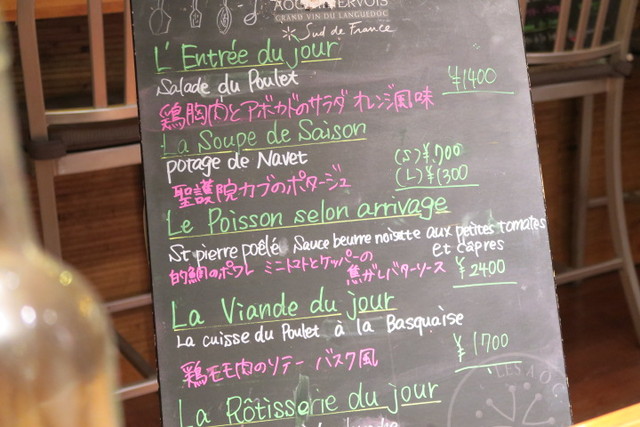 GRAND VIN DU LANGUEDOC
Sud de France
L'Entrée du jour
Salade du Poulet
¥1400
鶏胸肉とアボカドのサラダ オレンジ風味
La Soupe de Saison
potage de Navet
(S) ¥700
(L) ¥1300
聖護院カブのポタージュ
Le Poisson selon arrivage
St pierre poêlé Sauce beurre noisette aux petites tomates
et capres
的鯛のポワレ ミニトマトとケッパーの
焦がしバターソース
¥2400
La Viande du jour
La cuisse du Poulet à la Basquaise
¥1700
鶏モモ肉のソテー バスク風
La Rôtisserie du jour